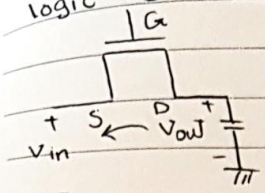 logic
G
+ S D +
Vin Vout
-